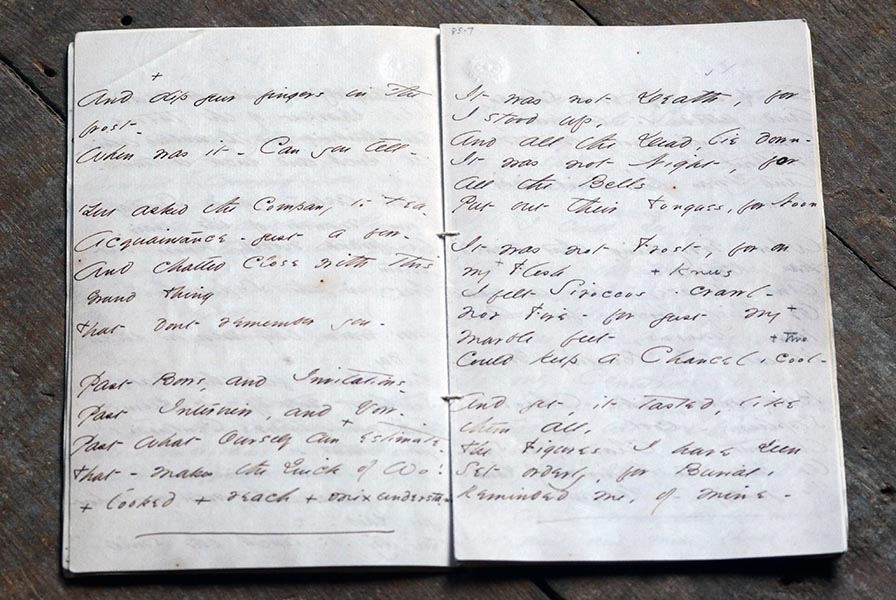 +
And dip your fingers in the
frost -
When was it - Can you tell -
Who asked the Company to tea -
Acquaintance - just a few -
And chatted close with this
Grand thing
that dont remember you -
Past Bows, and Invitations -
Past Interview, and Vow -
+
Past what Ourself can estimate -
that - makes the Quick of Wo!
+ Touched + reach + mix
85-7
It was not Death, for
I stood up,
And all the Dead, lie down -
It was not Night, for
all the Bells
Put out their Tongues, for Noon
It was not Frost, for on
my Flesh + Knees
I felt Siroccos - crawl -
Nor Fire - for just my +
marble feet + two
Could keep a Chancel, cool -
And yet, it tasted, like
them all,
The Figures I have seen
Set orderly, for Burial,
Reminded me, of mine -